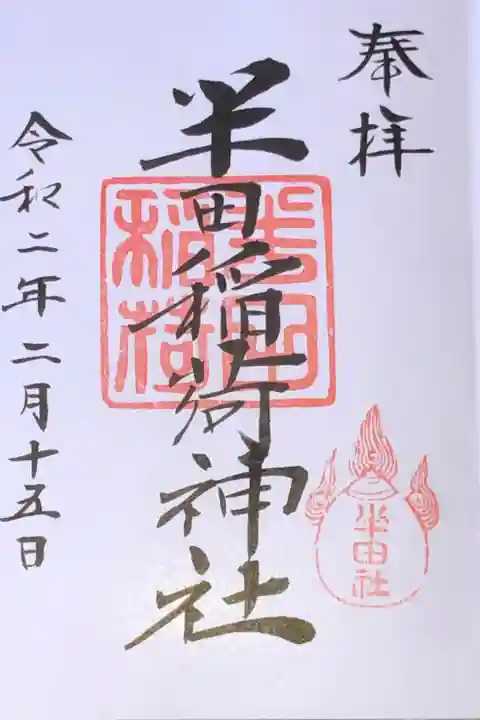 奉拝
半田稲荷神社
半田
稲荷
半田社
令和二年二月十五日